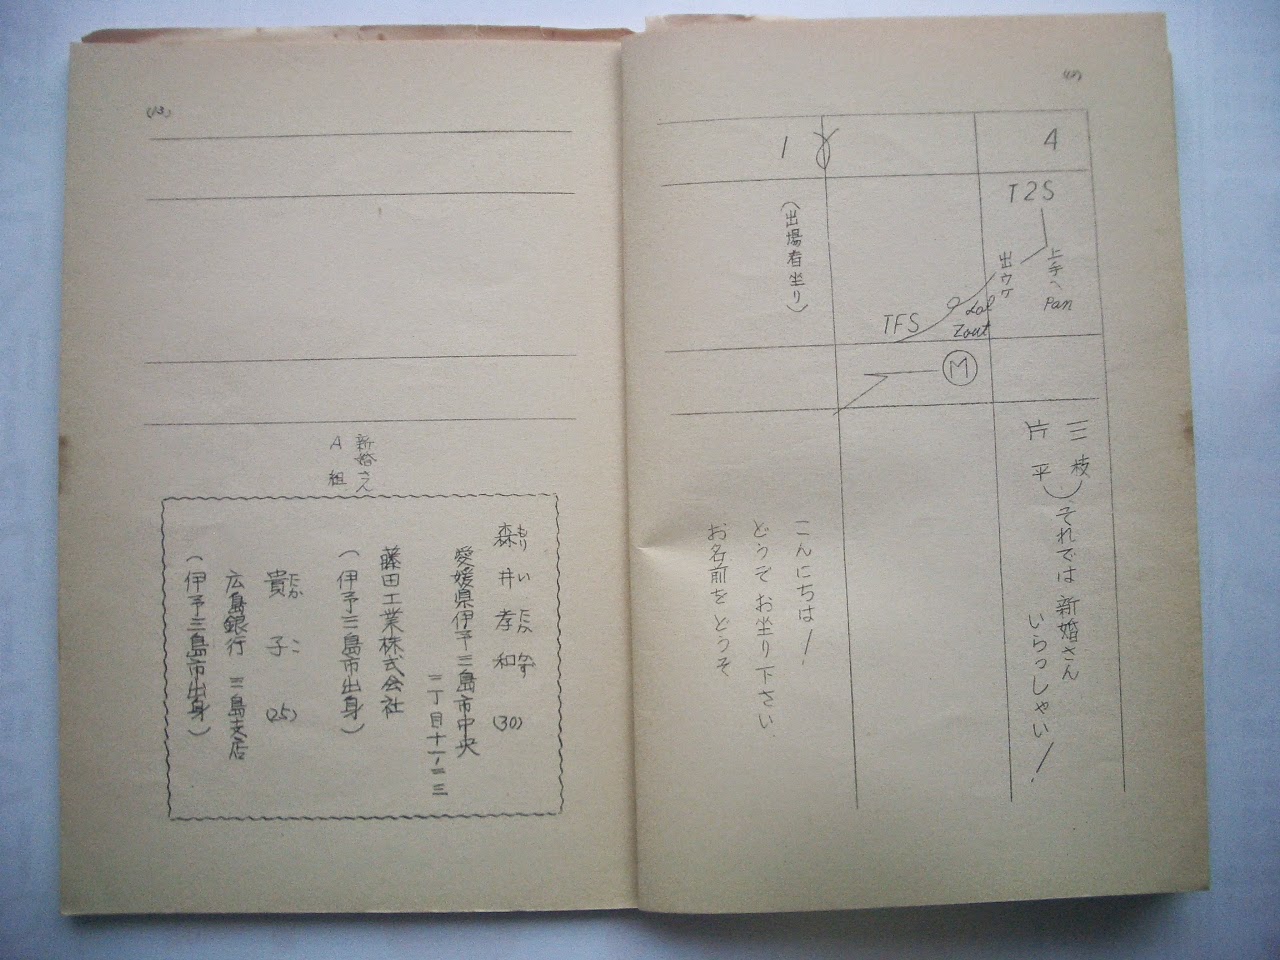 (12)
4
T2S
上手へ
Pan
出ウケ
Lol
Zout
TFS
M
1
(出場者坐り)
三枝
片平
それでは新婚さん
いらっしゃい!
こんにちは!
どうぞお坐り下さい
お名前をどうぞ
(13)
新婚さん
A組
森井孝和 (30)
もりい たかかず
愛媛県伊予三島市中央
二丁目十一ノ二三
藤田工業株式会社
(伊予三島市出身)
貴子 (25)
たかこ
広島銀行 三島支店
(伊予三島市出身)